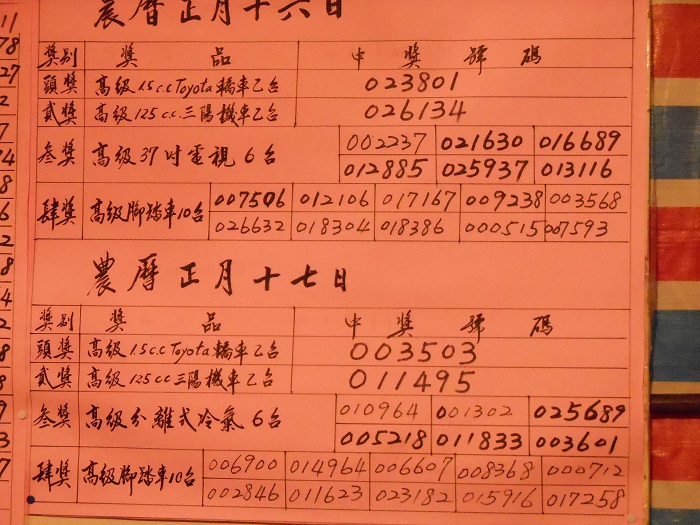 農曆正月十六日
獎別 獎品 中獎號碼
頭獎 高級1.5c.c Toyota轎車乙台 023801
貳獎 高級125c.c.三陽機車乙台 026134
叁獎 高級37吋電視6台 002237 021630 016689
012885 025937 013116
肆獎 高級腳踏車10台 007506 012106 017167 009238 003568
026632 018304 018386 000515 007593
農曆正月十七日
獎別 獎品 中獎號碼
頭獎 高級1.5c.c Toyota轎車乙台 003503
貳獎 高級125cc三陽機車乙台 011495
叁獎 高級分離式冷氣6台 010964 001302 025689
005218 011833 003601
肆獎 高級腳踏車10台 006900 014964 006607 008368 000712
002846 011623 023182 015916 017258